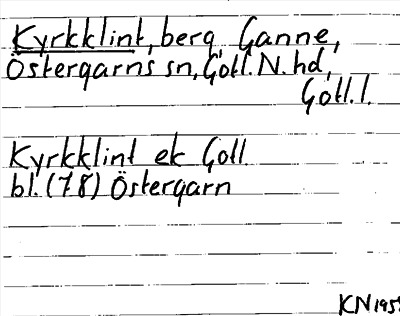 Kyrkklint, berg, Ganne,
Östergarns sn, Gotl. N. hd,
Gotl. l.
Kyrkklint ek Gotl
bl. (78) Östergarn
KN 195